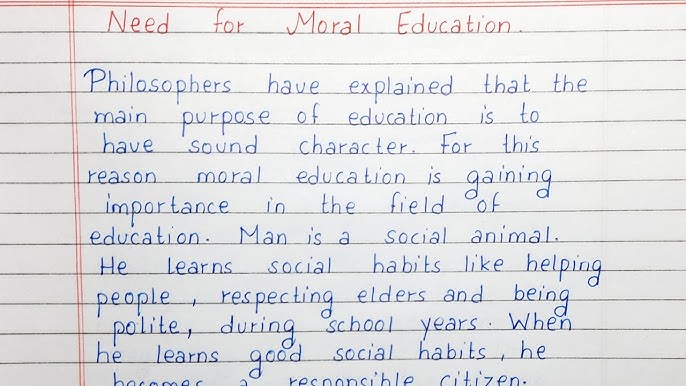 Need for Moral Education.
Philosophers have explained that the
main purpose of education is to
have sound character. For this
reason moral education is gaining
importance in the field of
education. Man is a social animal.
He learns social habits like helping
people, respecting elders and being
polite, during school years. When
he learns good social habits, he
becomes a responsible citizen.